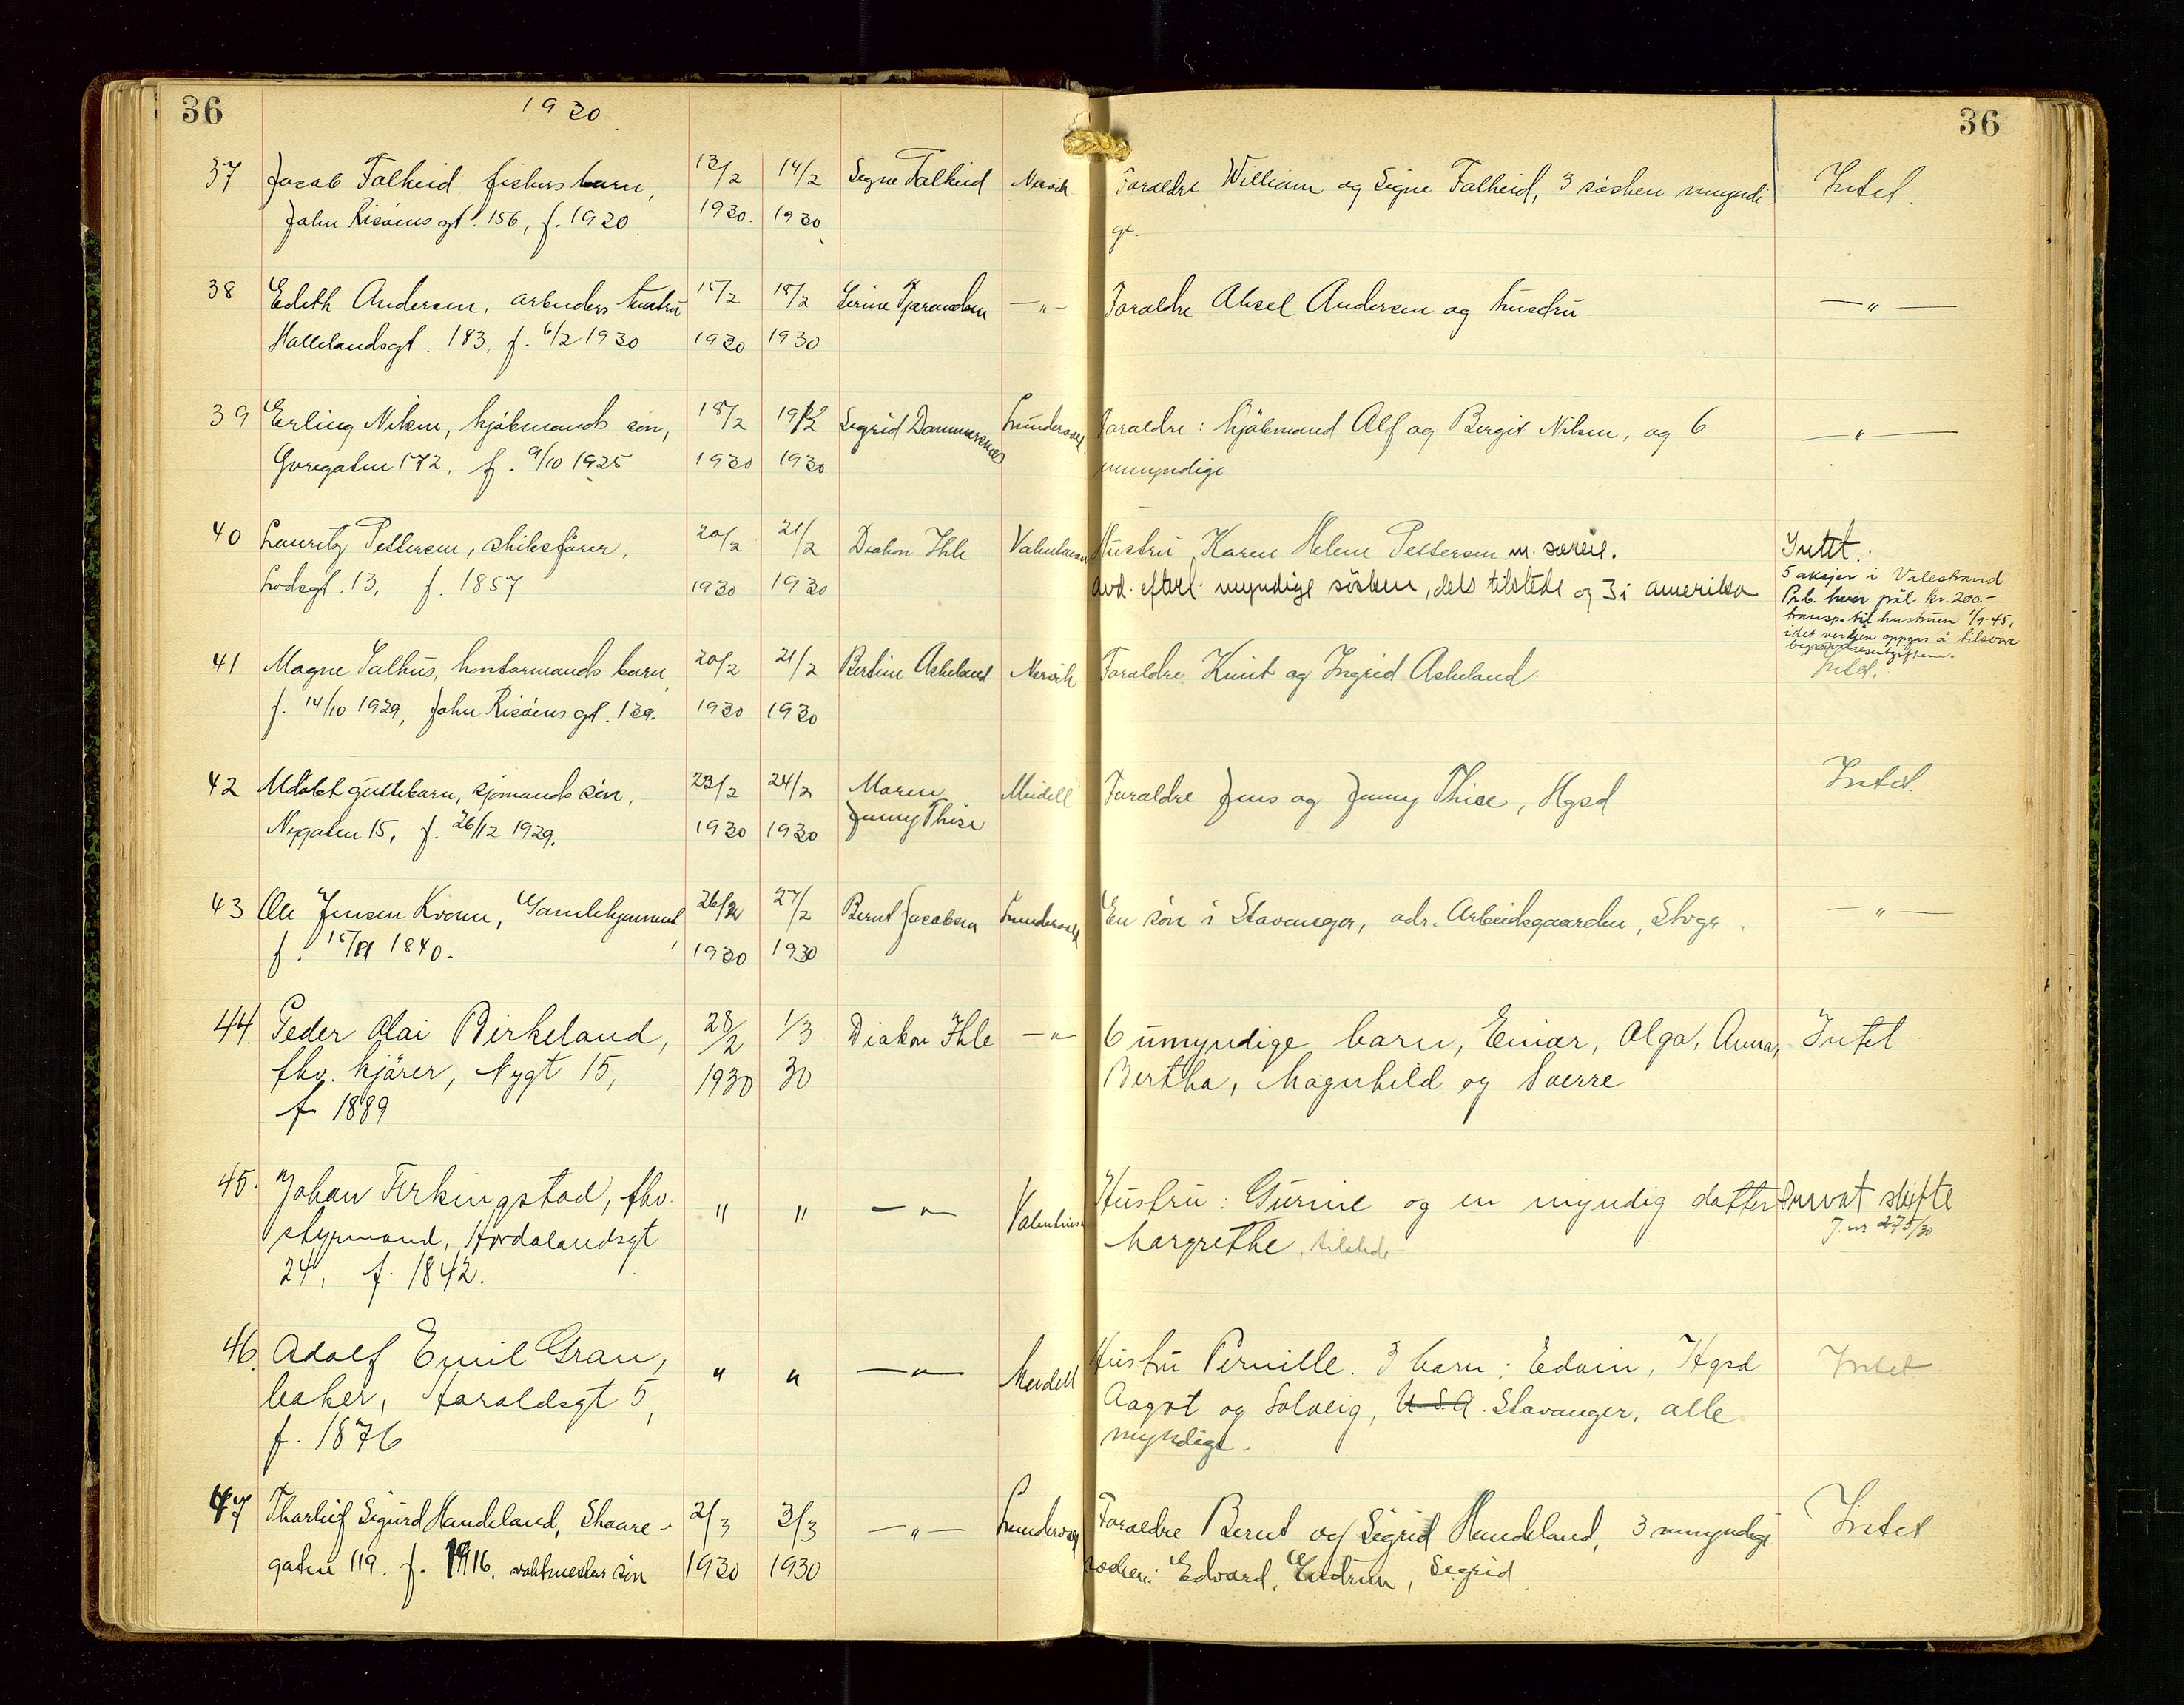 36
1930
36
37 Jacob Falheid, fiskers barn, 13/2 14/2 Signe Falheid Nervik Foraldre William og Signe Falheid, 3 søsken umyndi- Intet.
John Risøens gt. 156, f. 1920. 1930. 1930 ge.
38 Edith Andersen, arbeiders hustru 15/2 18/2 —„— Foraldre Aksel Andersen og hustru —„—
Hallelandsgt. 183, f. 6/2 1930 1930 1930
39 Erling Nilsen, kjøbmands søn, 18/2 19/2 Sigrid Lundervold Foraldre: Kjøbmand Alf og Bergit Nilsen, og 6 —„—
172, f. 9/10 1925 1930 1930 umyndige
40 Lauritz Pettersen, skibsfører, 20/2 21/2 Diakon Ihle Valentinsen Hustru Karen Helene Pettersen m. særeie. Intet.
Lodsgt. 13, f. 1857 1930 1930 avd. efterl. myndige søsken, dels tilstede og 3 i Amerika
5 aksjer i Valestrand
hver pål. kr. 200.-
transp. til hustruen 1/9-45,
idet verdien oppgas å tilsvare
begravelsesutgiftene.
41 Magne Salhus, kontormands barn 20/2 21/2 Bertine Askeland Nervik Foraldre Knut og Ingrid Askeland. Intet.
f. 14/10 1929, John Risøens gt. 139. 1930 1930
42 Udøbt guttebarn, sjømands søn, 23/2 24/2 Maren Meidell Foraldre Jens og Jenny Thise, Hgsd Intet.
Nygaten 15, f. 26/12 1929. 1930 1930 Jenny Thise
43 Ole Jensen Kvam, Gamlehjemmet, 26/2 27/2 Bernt Jacobsen Lundervold En søn i Stavanger, adr. Arbeidsgaarden, Stvgr. —„—
f. 1840. 1930 1930
44. Peder Olai Birkeland, 28/2 1/3 Diakon Ihle —„— 6 umyndige barn, Einar, Olga, Anna, Intet.
fhv. kjører, Nygt 15, 1930 30 Bertha, Magnhild og Sverre
f. 1889.
45. Johan Ferkingstad, fhv. " " —„— Valentinsen Hustru: Gurine og en myndig datter Privat skifte
styrmand, Hordalandsgt Margrethe, tilstede J.nr 275/30
24, f. 1842.
46. Adolf Emil Grau, " " —„— Meidell Hustru Pernille. 3 barn: Edvin, Hgsd Intet.
baker, Haraldsgt 5, Aagot og Solveig, U.S.A. Stavanger, alle
f. 1876 myndige.
47 Tharleif Sigurd Handeland, Skaare- 2/3 3/3 —„— Lundervold Foraldre Bernt og Sigrid Handeland, 3 umyndige Intet
gaten 119. f. 1916. vaktmesters søn 1930 1930 søsken: Edvard, Gudrun, Sigrid